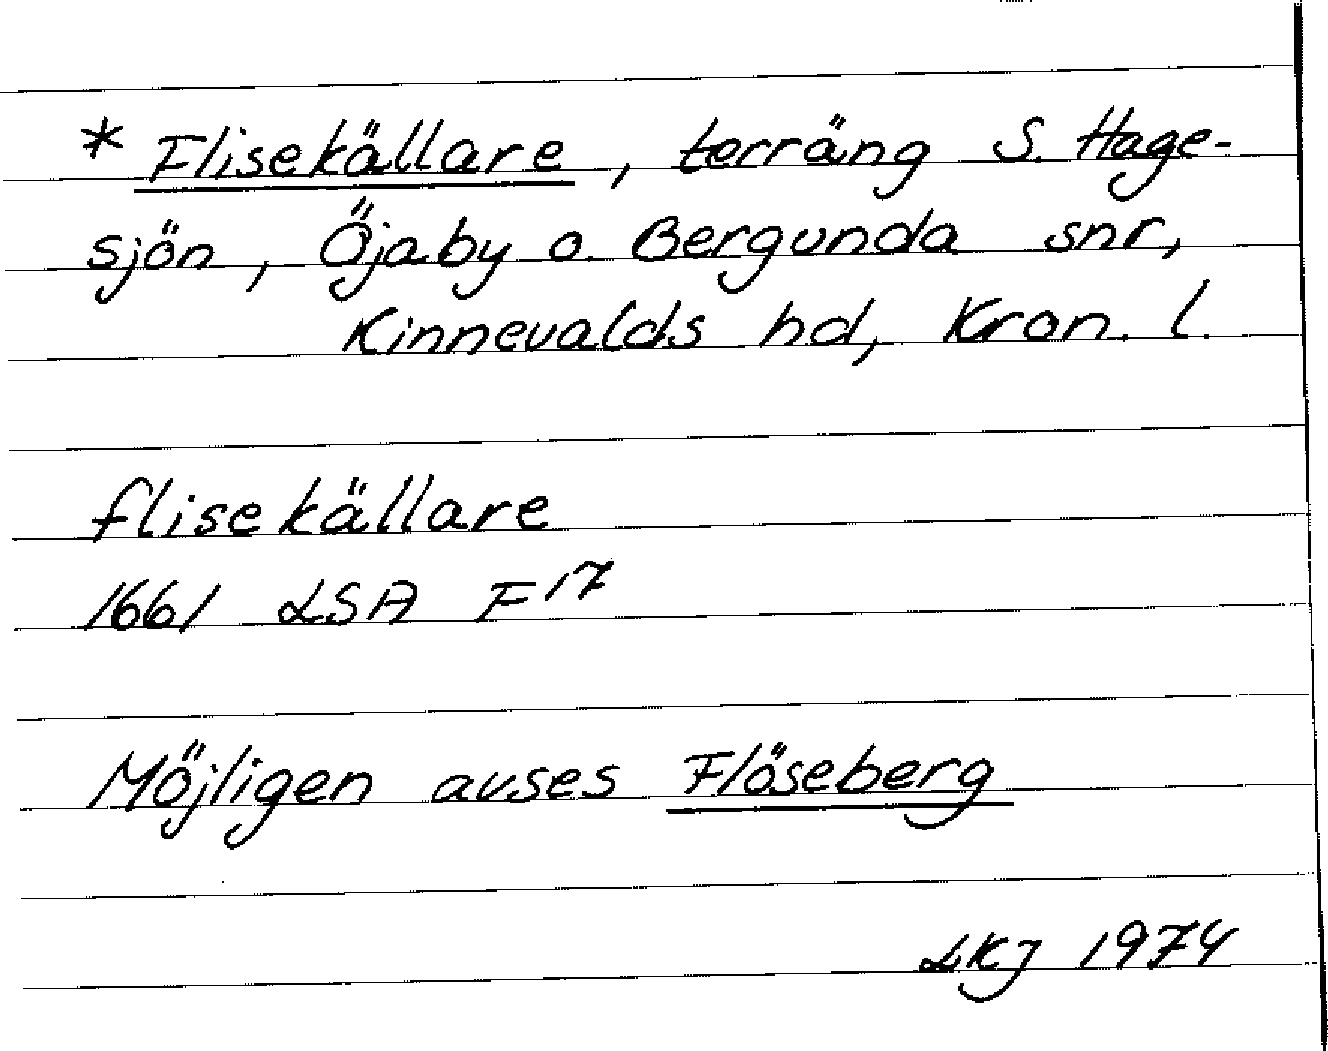 * Flisekällare, terräng S. Hage-
sjön, Öjaby o. Bergunda snr,
Kinnevalds hd, Kron. l.
flisekällare
1661 LSA F17
Möjligen avses Flöseberg
LKJ 1974